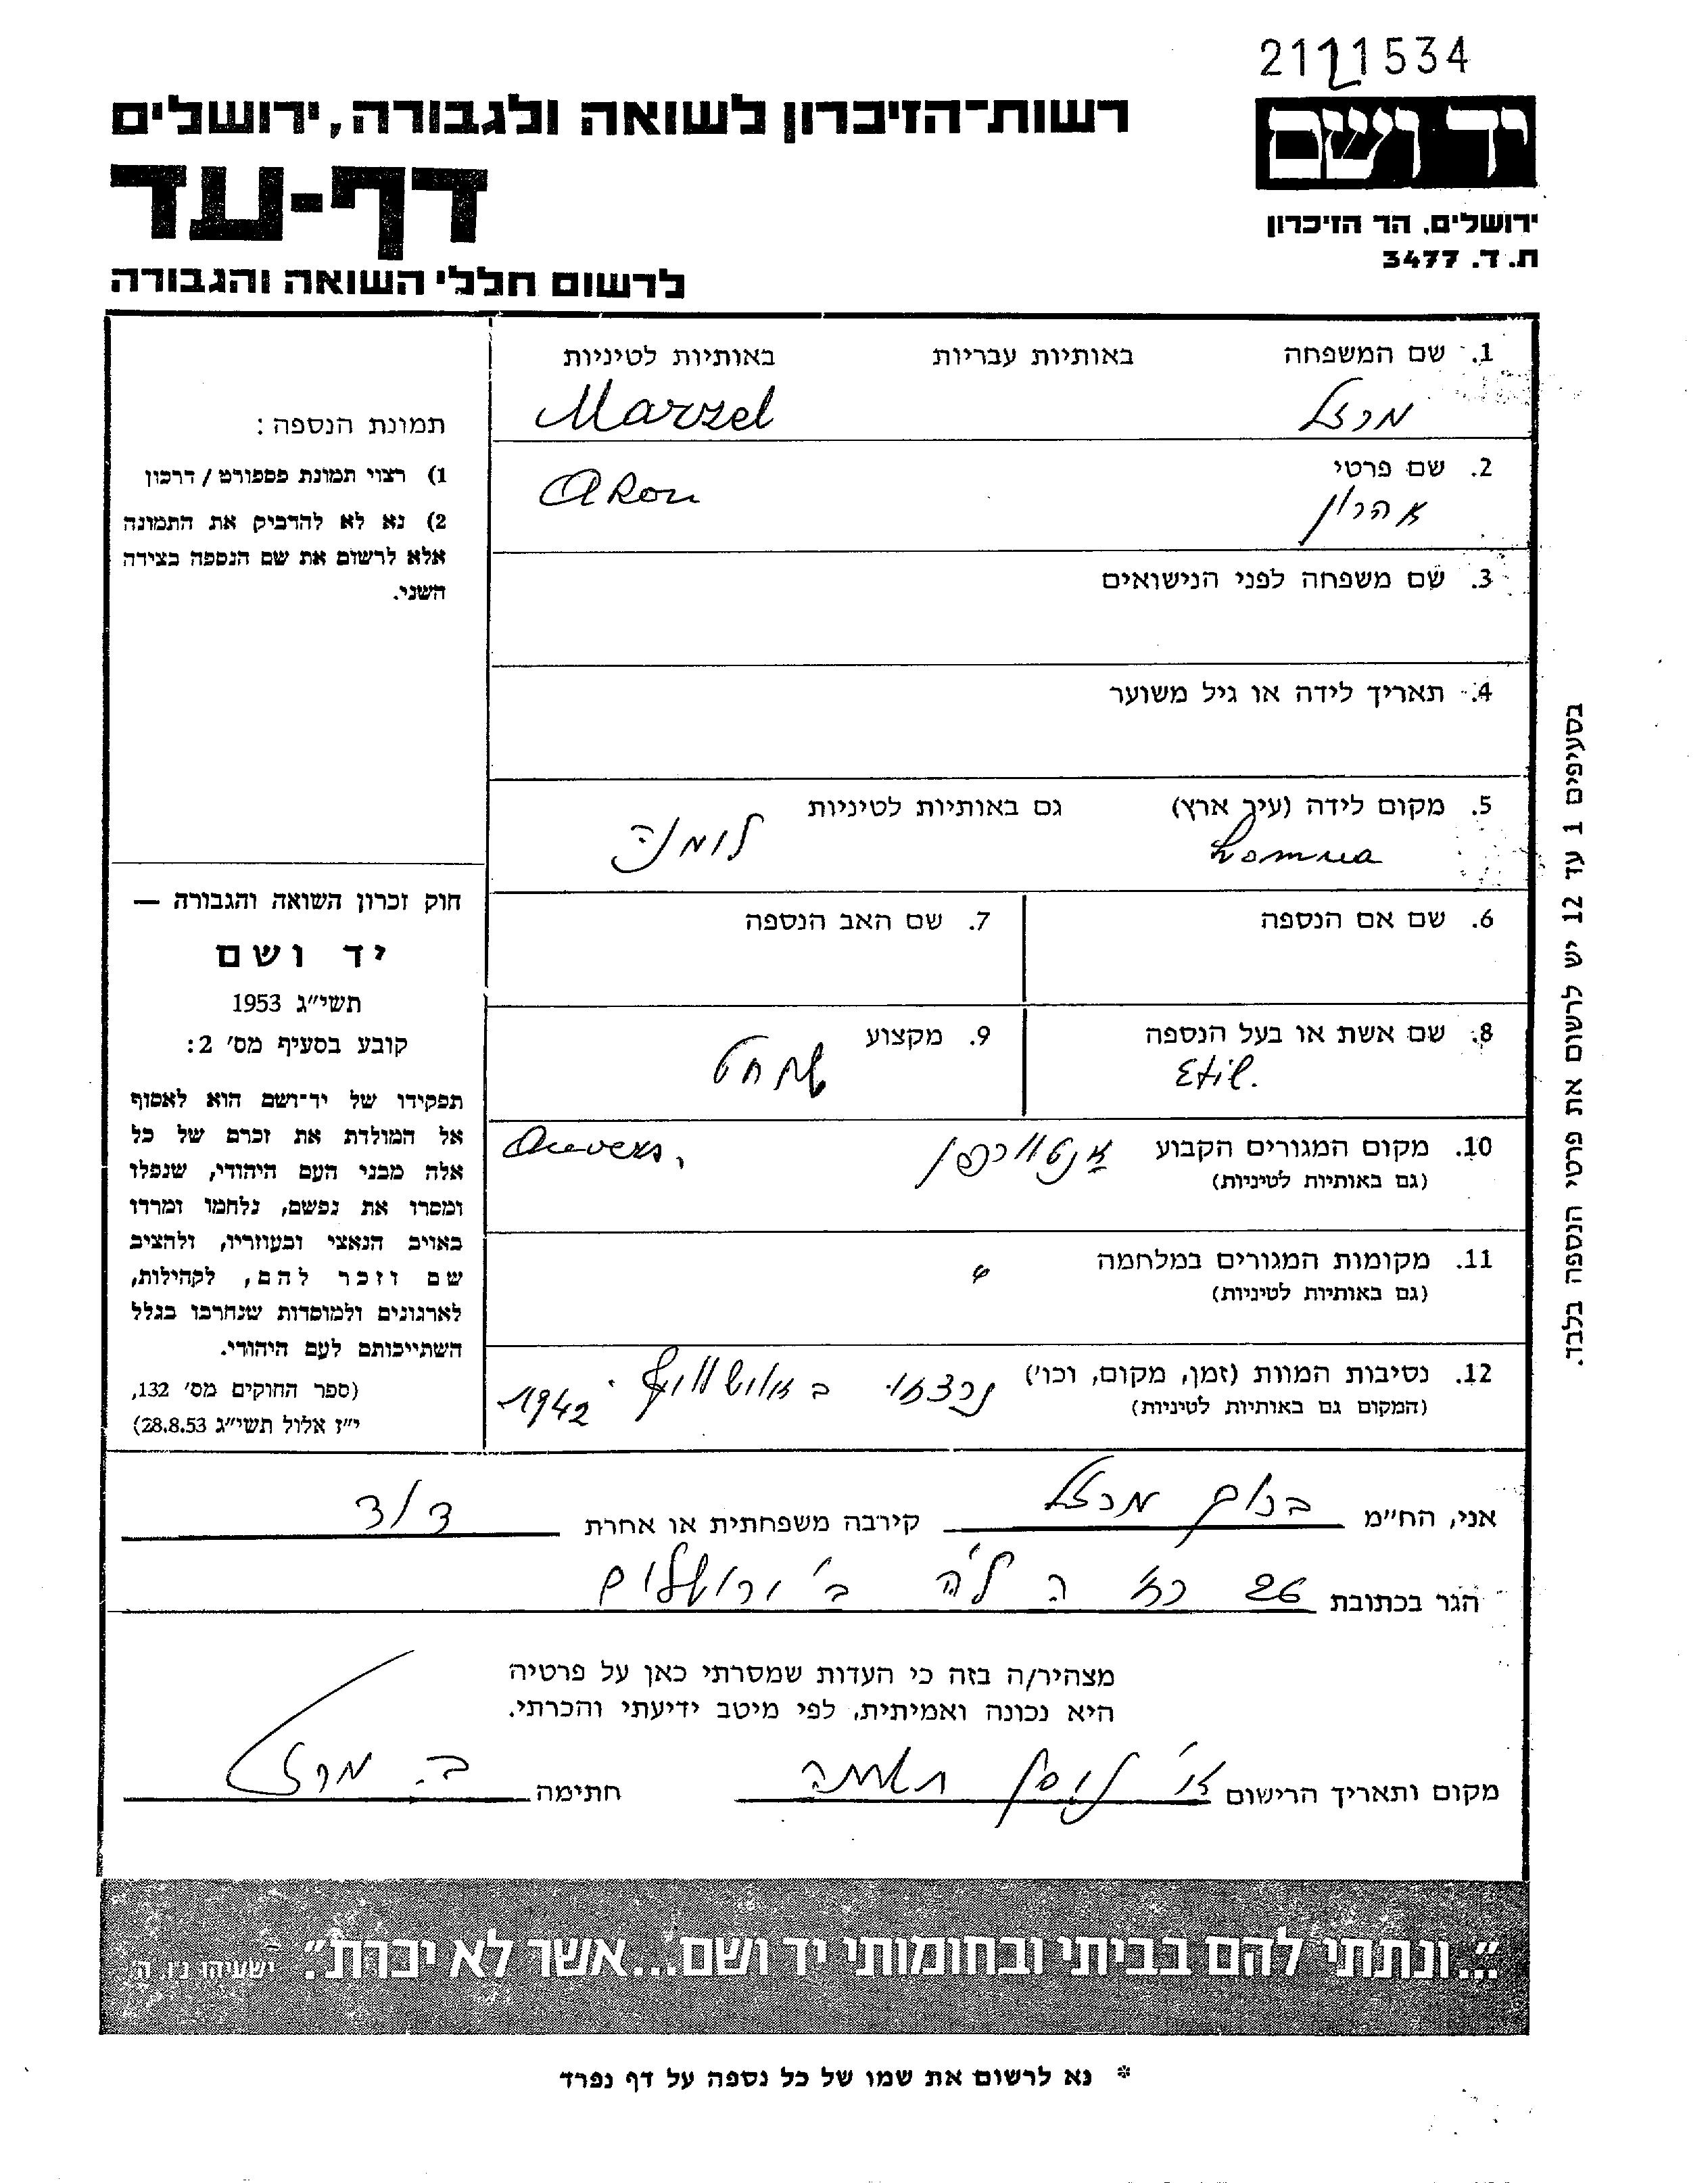 2111534
יד ושם
רשות־הזיכרון לשואה ולגבורה, ירושלים
דף-עד
ירושלים, הר הזיכרון
ת.ד. 3477
לרשום חללי השואה והגבורה
1. שם המשפחה באותיות עבריות באותיות לטיניות
מרזל Marzel
2. שם פרטי
אהרון Aron
3. שם משפחה לפני הנישואים
4. תאריך לידה או גיל משוער
5. מקום לידה (עיר ארץ) גם באותיות לטיניות
לומנה
6. שם אם הנספה 7. שם האב הנספה
8. שם אשת או בעל הנספה 9. מקצוע
Etil. שוחט
10. מקום המגורים הקבוע
(גם באותיות לטיניות)
אנטוורפן
11. מקומות המגורים במלחמה
(גם באותיות לטיניות)
12. נסיבות המוות (זמן, מקום, וכו')
(המקום גם באותיות לטיניות)
ב אושוויץ. 1942
תמונת הנספה:
1) רצוי תמונת פספורט / דרכון
2) נא לא להדביק את התמונה
אלא לרשום את שם הנספה בצידה
השני.
חוק זכרון השואה והגבורה —
יד ושם
תשי״ג 1953
קובע בסעיף מס׳ 2:
תפקידו של יד־ושם הוא לאסוף
אל המולדת את זכרם של כל
אלה מבני העם היהודי, שנפלו
ומסרו את נפשם, נלחמו ומרדו
באויב הנאצי ובעוזריו, ולהציב
שם וזכר להם, לקהילות,
לארגונים ולמוסדות שנחרבו בגלל
השתייכותם לעם היהודי.
(ספר החוקים מס׳ 132,
י״ז אלול תשי״ג 28.8.53)
בסעיפים 1 עד 12 יש לרשום את פרטי הנספה בלבד.
אני, הח״מ מרזל קירבה משפחתית או אחרת דוד
הגר בכתובת ה ל"ה ב' ירושלים
מצהיר/ה בזה כי העדות שמסרתי כאן על פרטיה
היא נכונה ואמיתית, לפי מיטב ידיעתי והכרתי.
מקום ותאריך הרישום חתימה ב. מרזל
״...ונתתי להם בביתי ובחומותי יד ושם...אשר לא יכרת״. ישעיהו נ״ו, ה׳
* נא לרשום את שמו של כל נספה על דף נפרד